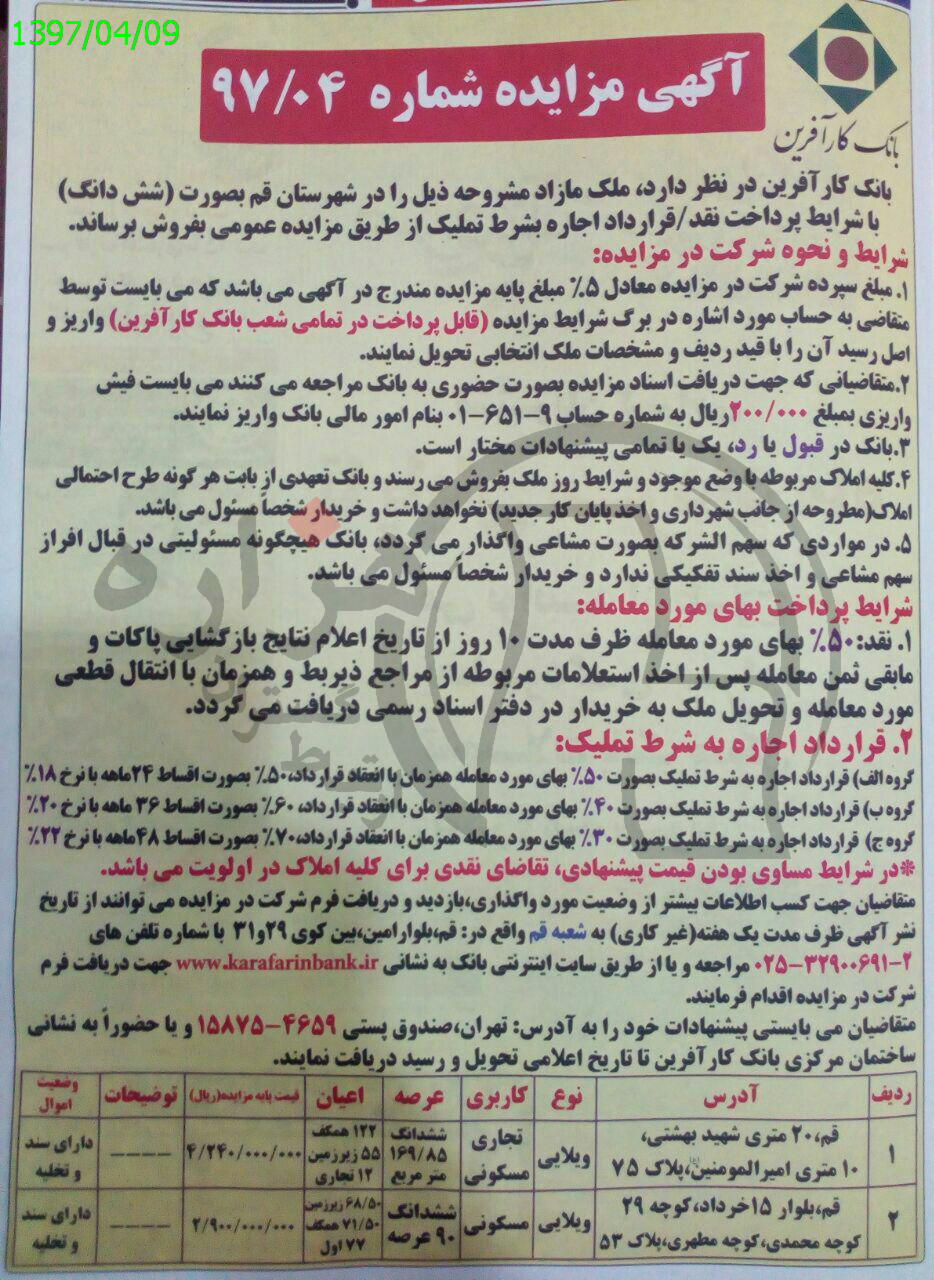 1397/04/09
آگهی مزایده شماره ۹۷/۰۴
بانک کارآفرین
بانک کارآفرین در نظر دارد، ملک مازاد مشروحه ذیل را در شهرستان قم بصورت (شش دانگ)
با شرایط پرداخت نقد/قرارداد اجاره بشرط تملیک از طریق مزایده عمومی بفروش برساند.
شرایط و نحوه شرکت در مزایده:
۱. مبلغ سپرده شرکت در مزایده معادل ۵٪ مبلغ پایه مزایده مندرج در آگهی می باشد که می بایست توسط
متقاضی به حساب مورد اشاره در برگ شرایط مزایده (قابل پرداخت در تمامی شعب بانک کارآفرین) واریز و
اصل رسید آن را با قید ردیف و مشخصات ملک انتخابی تحویل نمایند.
۲.متقاضیانی که جهت دریافت اسناد مزایده بصورت حضوری به بانک مراجعه می کنند می بایست فیش
واریزی بمبلغ ۲۰۰/۰۰۰ریال به شماره حساب ۹-۶۵۱-۰۱ بنام امور مالی بانک واریز نمایند.
۳.بانک در قبول یا رد، یک یا تمامی پیشنهادات مختار است.
۴.کلیه املاک مربوطه با وضع موجود و شرایط روز ملک بفروش می رسند و بانک تعهدی از بابت هر گونه طرح احتمالی
املاک(مطروحه از جانب شهرداری و اخذ پایان کار جدید) نخواهد داشت و خریدار شخصاً مسئول می باشد.
۵. در مواردی که سهم الشرکه بصورت مشاعی واگذار می گردد، بانک هیچگونه مسئولیتی در قبال افراز
سهم مشاعی و اخذ سند تفکیکی ندارد و خریدار شخصاً مسئول می باشد.
شرایط پرداخت بهای مورد معامله:
۱. نقد:۵۰٪ بهای مورد معامله ظرف مدت ۱۰ روز از تاریخ اعلام نتایج بازگشایی پاکات و
مابقی ثمن معامله پس از اخذ استعلامات مربوطه از مراجع ذیربط و همزمان با انتقال قطعی
مورد معامله و تحویل ملک به خریدار در دفتر اسناد رسمی دریافت می گردد.
۲. قرارداد اجاره به شرط تملیک:
گروه الف) قرارداد اجاره به شرط تملیک بصورت ۵۰٪ بهای مورد معامله همزمان با انعقاد قرارداد،۵۰٪ بصورت اقساط ۲۴ماهه با نرخ ۱۸٪
گروه ب) قرارداد اجاره به شرط تملیک بصورت ۴۰٪ بهای مورد معامله همزمان با انعقاد قرارداد، ۶۰٪ بصورت اقساط ۳۶ ماهه با نرخ ۲۰٪
گروه ج) قرارداد اجاره به شرط تملیک بصورت ۳۰٪ بهای مورد معامله همزمان با انعقاد قرارداد،۷۰٪ بصورت اقساط ۴۸ماهه با نرخ ۲۲٪
*در شرایط مساوی بودن قیمت پیشنهادی، تقاضای نقدی برای کلیه املاک در اولویت می باشد.
متقاضیان جهت کسب اطلاعات بیشتر از وضعیت مورد واگذاری،بازدید و دریافت فرم شرکت در مزایده می توانند از تاریخ
نشر آگهی ظرف مدت یک هفته(غیر کاری) به شعبه قم واقع در: قم،بلوارامین،بین کوی ۲۹و۳۱ با شماره تلفن های
۲-۳۲۹۰۰۶۹۱-۰۲۵ مراجعه و یا از طریق سایت اینترنتی بانک به نشانی www.karafarinbank.ir جهت دریافت فرم
شرکت در مزایده اقدام فرمایند.
متقاضیان می بایستی پیشنهادات خود را به آدرس: تهران،صندوق پستی ۴۶۵۹-۱۵۸۷۵ و یا حضوراً به نشانی
ساختمان مرکزی بانک کارآفرین تا تاریخ اعلامی تحویل و رسید دریافت نمایند.
ردیف آدرس نوع کاربری عرصه اعیان قیمت پایه مزایده(ریال) توضیحات وضعیت اموال
۱ قم،۲۰ متری شهید بهشتی، ۱۰ متری امیرالمومنین،پلاک ۷۵ ویلایی تجاری مسکونی ششدانگ ۱۶۹/۸۵ متر مربع ۱۲۲ همکف ۵۵ زیرزمین ۱۲ تجاری ۴/۲۴۰/۰۰۰/۰۰۰ ---- دارای سند و تخلیه
۲ قم،بلوار ۱۵خرداد،کوچه ۲۹ کوچه محمدی،کوچه مطهری،پلاک ۵۳ ویلایی مسکونی ششدانگ ۹۰ عرصه ۶۸/۵۰ زیرزمین ۷۱/۵۰ همکف ۷۷ اول ۲/۹۰۰/۰۰۰/۰۰۰ ---- دارای سند و تخلیه